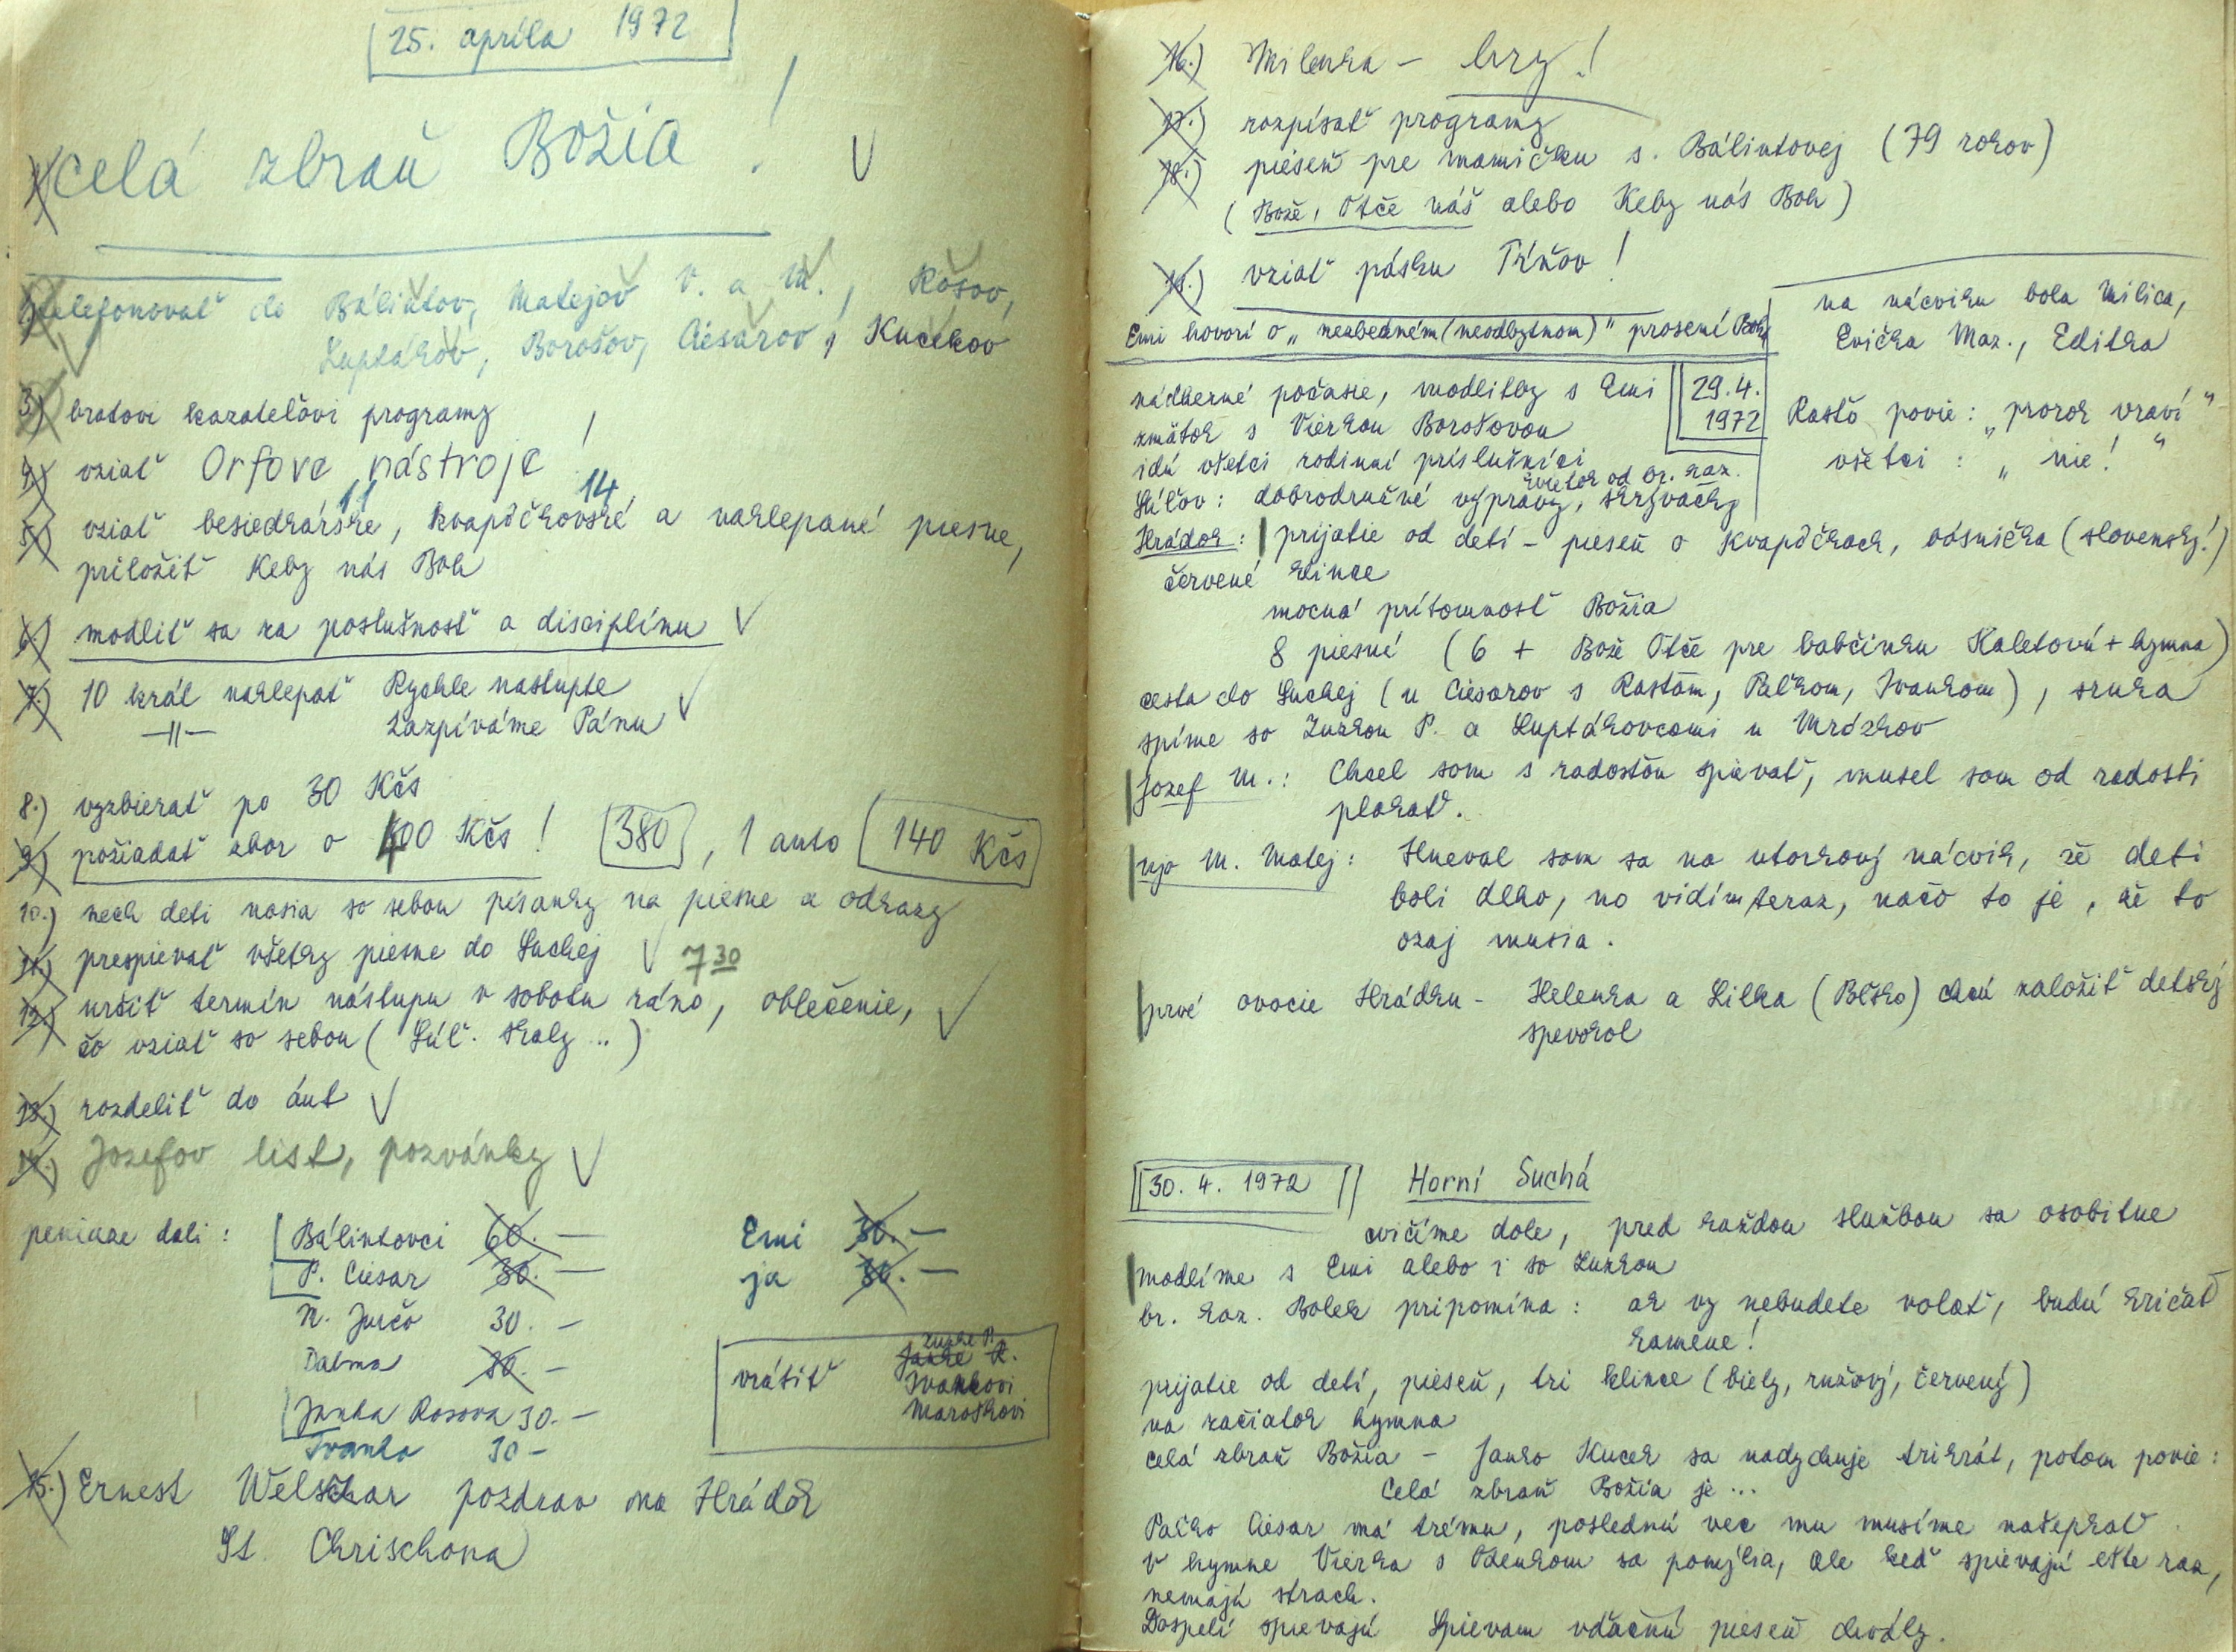 25. apríla 1972
1.) celá zbraň Božia !
2.) telefonovať do Bálintov, Matejov V. a M., Rosov,
Luptákov, Borošov, Ciesarov, Kucekov
3.) bratovi kazateľovi programy
4.) vziať Orfove nástroje !
11 14
5.) vziať besiedkárske, kvapôčkovské a naklepané piesne,
priložiť Keby nás Boh
6.) modliť sa za poslušnosť a disciplínu
7.) 10 krát naklepať Rychle nastupte
—||— Zazpíváme Pánu
8.) vyzbierať po 30 Kčs
9.) požiadať zbor o 400 Kčs ! 380, 1 auto 140 Kčs
10.) nech deti nosia so sebou písanky na piesne a odkazy
11.) prespievať všetky piesne do Suchej
7 30
12.) určiť termín nástupu v sobotu ráno, oblečenie,
čo vziať so sebou (Súľ. skaly ..)
13.) rozdeliť do áut
14.) Jozefov list, pozvánky
peniaze dali : Bálintovci 60.— Emi 30.—
P. Ciesar 30.— ja 30.—
N. Jurčo 30.—
Dalma 30.—
Zuzke P.
vrátiť Janke R.
Ivankovi
Maroškovi
Janka Rosova 30.—
Ivanko 30—
15.) Ernest Welschar pozdrav na Hrádok
St. Chrischona
16.) Milenka – kry !
17.) rozpísať programy
18.) pieseň pre mamičku s. Bálintovej (79 rokov)
(Bože, Otče náš alebo Keby nás Boh)
19.) vziať pásku Tížov !
Emi hovorí o „nezbedném (neodbytnom)" prosení Boha
na nácviku bola Milica,
Evička Maz., Editka
Rasťo povie : „prorok vraví"
všetci : „nie!"
29.4.
1972
nádherné počasie, modlitby s Emi
zmätok s Vierkou Borošovou
idú všetci rodinní príslušníci
kvietok od br. kaz.
Súľov : dobrodružné výpravy, skrývačky
Hrádok : prijatie od detí – pieseň o Kvapôčkach, básnička (slovensky!)
červené klince
mocná prítomnosť Božia
8 piesní (6 + Bože Otče pre babčinku Kaletovú + hymna)
cesta do Suchej (u Ciesarov s Rasťom, Paľkom, Ivankom), sruka
spíme so Zuzkou P. a Luptákovcami u Mrózkov
Jozef M.: Chcel som s radosťou spievať, musel som od radosti
plakať.
ujo M. Matej : Hneval som sa na utorkový nácvik, že deti
boli dlho, no vidím teraz, načo to je, že to
ozaj musia.
prvé ovocie Hrádku – Helenka a Lilka (Blsko) chcú založiť detský
spevokol
30. 4. 1972 Horní Suchá
cvičíme dole, pred každou službou sa osobitne
modlíme s Emi alebo i so Zuzkou
br. kaz. Bolek pripomína : ak vy nebudete volať, budú kričať
kamene!
prijatie od detí, pieseň, tri klince (biely, ružový, červený)
na začiatok hymna
celá zbraň Božia – Janko Kucek sa nadychuje trikrát, potom povie :
Celá zbraň Božia je ...
Paľko Ciesar má trému, poslednú vec mu musíme našepkať
V hymne Vierka s Zdenkom sa pomýlia, ale keď spievajú ešte raz,
nemajú strach.
Dospelí spievajú Spievam vďačnú pieseň chvály.